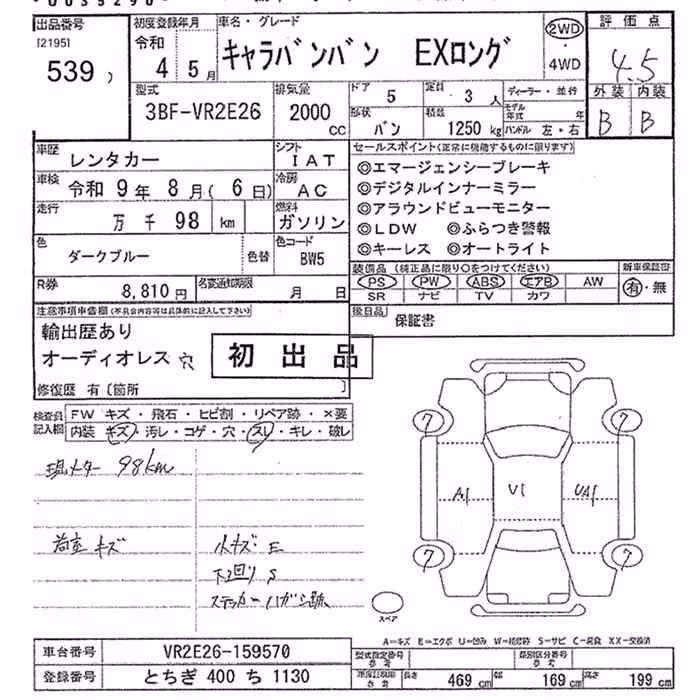 出品番号 初度登録年月 車名・グレード 評価点
[2195] 令和 キャラバンバン EXロング 2WD 4.5
539 4 年 5 月 ・ 4WD 外装 内装
型式 排気量 ドア 5 定員 3 人 ディーラー・並行 B B
3BF-VR2E26 2000 CC 形状 バン 積載 1250 kg モデル年式 年 ハンドル 左・右
車歴 レンタカー シフト IAT セールスポイント(正常に機能するものに限ります)
車検 令和 9 年 8 月( 6 日) 冷房 AC ◎エマージェンシーブレーキ
走行 万 千 98 km 燃料 ガソリン ◎デジタルインナーミラー
◎アラウンドビューモニター
色 ダークブルー 色替 色コード BW5 ◎LDW ◎ふらつき警報
◎キーレス ◎オートライト
R券 8,810 円 名変通知期限 月 日 装備品 (純正品に限り○をつけてください) 新車保証書
PS PW ABS エアB AW 有・無
SR ナビ TV カワ
注意事項申告欄(不具合内容等は具体的に記入して下さい) 後日品 保証書
輸出歴あり
オーディオレス 穴 初出品
修復歴 有〔箇所 〕
検査員 FW キズ・飛石・ヒビ割・リペア跡・×要
記入欄 内装 キズ・汚レ・コゲ・穴・スレ・キレ・破レ
現メーター 98km
7 7
A1 V1 UA1
荷室 キズ 小キズ E
7 7
下回り S
ステッカーハガシ跡
スペア
A=キズ E=エクボ U=凹み W=補修跡 S=サビ C=腐食 XX=交換済
車台番号 VR2E26-159570 型式指定番号 参考 類別区分番号 参考
登録番号 とちぎ 400 ち 1130 参考 長さ 469 cm 幅 169 cm 高さ 199 cm